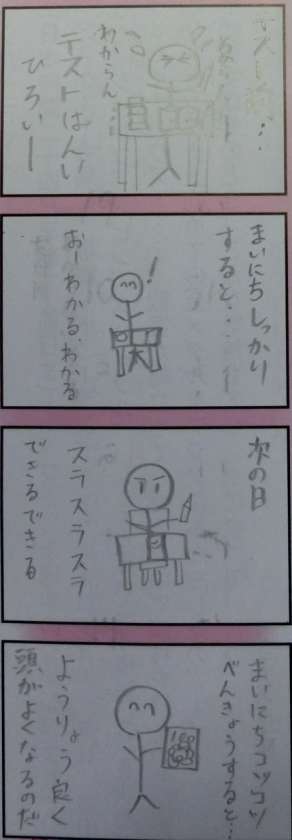 テスト前…
わからん…
テストはんい
ひろいー
まいにちしっかり
すると…
おーわかる、わかる
次の日
スラスラスラ
できるできる
まいにちコツコツ
べんきょうすると…
ようりょう良く
頭がよくなるのだ